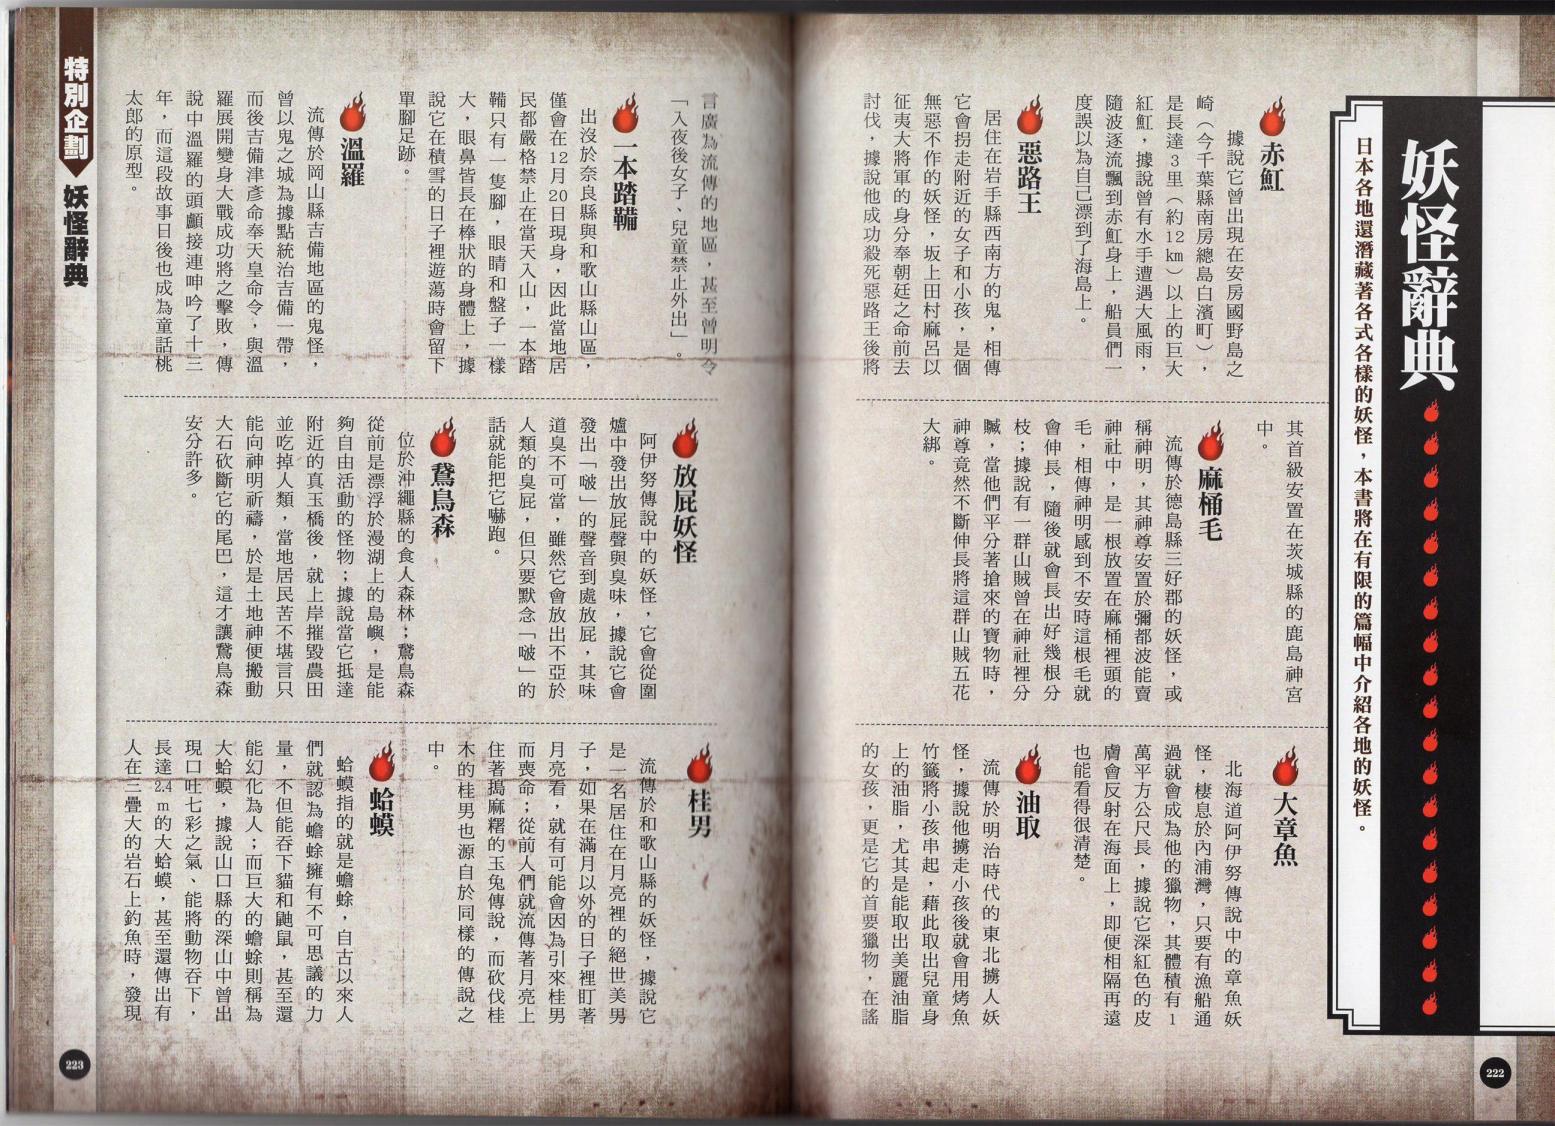 妖怪辭典
日本各地還潛藏著各式各樣的妖怪，本書將在有限的篇幅中介紹各地的妖怪。
赤魟
據說它曾出現在安房國野島之
崎（今千葉縣南房總島白濱町），
是長達3里（約12km）以上的巨大
紅魟，據說曾有水手遭遇大風雨，
隨波逐流飄到赤魟身上，船員們一
度誤以為自己漂到了海島上。
惡路王
居住在岩手縣西南方的鬼，相傳
它會拐走附近的女子和小孩，是個
無惡不作的妖怪，坂上田村麻呂以
征夷大將軍的身分奉朝廷之命前去
討伐，據說他成功殺死惡路王後將
其首級安置在茨城縣的鹿島神宮
中。
麻桶毛
流傳於德島縣三好郡的妖怪，或
稱神明，其神尊安置於彌都波能賣
神社中，是一根放置在麻桶裡頭的
毛，相傳神明感到不安時這根毛就
會伸長，隨後就會長出好幾根分
枝；據說有一群山賊曾在神社裡分
贓，當他們平分著搶來的寶物時，
神尊竟然不斷伸長將這群山賊五花
大綁。
大章魚
北海道阿伊努傳說中的章魚妖
怪，棲息於內浦灣，只要有漁船通
過就會成為他的獵物，其體積有1
萬平方公尺長，據說它深紅色的皮
膚會反射在海面上，即便相隔再遠
也能看得很清楚。
油取
流傳於明治時代的東北擄人妖
怪，據說他擄走小孩後就會用烤魚
竹籤將小孩串起，藉此取出兒童身
上的油脂，尤其是能取出美麗油脂
的女孩，更是它的首要獵物，在謠
222
言廣為流傳的地區，甚至曾明令
「入夜後女子、兒童禁止外出」。
一本踏鞴
出沒於奈良縣與和歌山縣山區，
僅會在12月20日現身，因此當地居
民都嚴格禁止在當天入山，一本踏
鞴只有一隻腳，眼睛和盤子一樣
大，眼鼻皆長在棒狀的身體上，據
說它在積雪的日子裡遊蕩時會留下
單腳足跡。
溫羅
流傳於岡山縣吉備地區的鬼怪，
曾以鬼之城為據點統治吉備一帶，
而後吉備津彥命奉天皇命令，與溫
羅展開變身大戰成功將之擊敗，傳
說中溫羅的頭顱接連呻吟了十三
年，而這段故事日後也成為童話桃
太郎的原型。
放屁妖怪
阿伊努傳說中的妖怪，它會從圍
爐中發出放屁聲與臭味，據說它會
發出「啵」的聲音到處放屁，其味
道臭不可當，雖然它會放出不亞於
人類的臭屁，但只要默念「啵」的
話就能把它嚇跑。
鵞鳥森
位於沖繩縣的食人森林；鵞鳥森
從前是漂浮於漫湖上的島嶼，是能
夠自由活動的怪物；據說當它抵達
附近的真玉橋後，就上岸摧毀農田
並吃掉人類，當地居民苦不堪言只
能向神明祈禱，於是土地神便搬動
大石砍斷它的尾巴，這才讓鵞鳥森
安分許多。
桂男
流傳於和歌山縣的妖怪，據說它
是一名居住在月亮裡的絕世美男
子，如果在滿月以外的日子裡盯著
月亮看，就有可能會因為引來桂男
而喪命；從前人們就流傳著月亮上
住著搗麻糬的玉兔傳說，而砍伐桂
木的桂男也源自於同樣的傳說之
中。
蛤蟆
蛤蟆指的就是蟾蜍，自古以來人
們就認為蟾蜍擁有不可思議的力
量，不但能吞下貓和鼬鼠，甚至還
能幻化為人；而巨大的蟾蜍則稱為
大蛤蟆，據說山口縣的深山中曾出
現口吐七彩之氣、能將動物吞下，
長達2.4m的大蛤蟆，甚至還傳出有
人在三疊大的岩石上釣魚時，發現
特別企劃
妖怪辭典
223